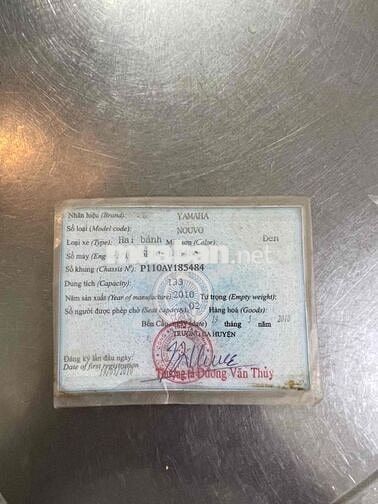 Nhãn hiệu (Brand): YAMAHA
Số loại (Model code): NOUVO
Loại xe (Type): Hai bánh Màu sơn (Color): Đen
Số máy (Engine
Số khung (Chassis Nº): P110AY185484
Dung tích (Capacity): 133
Năm sản xuất (Year of manufacture): 2010 Tự trọng (Empty weight):
Số người được phép chở (Seat capacity): 02 Hàng hoá (Goods):
(date) 19 tháng năm 2010
TRƯỞNG CA HUYỆN
Đăng ký lần đầu ngày:
Date of first registration
19/03/2010
Thượng tá Dương Văn Thủy